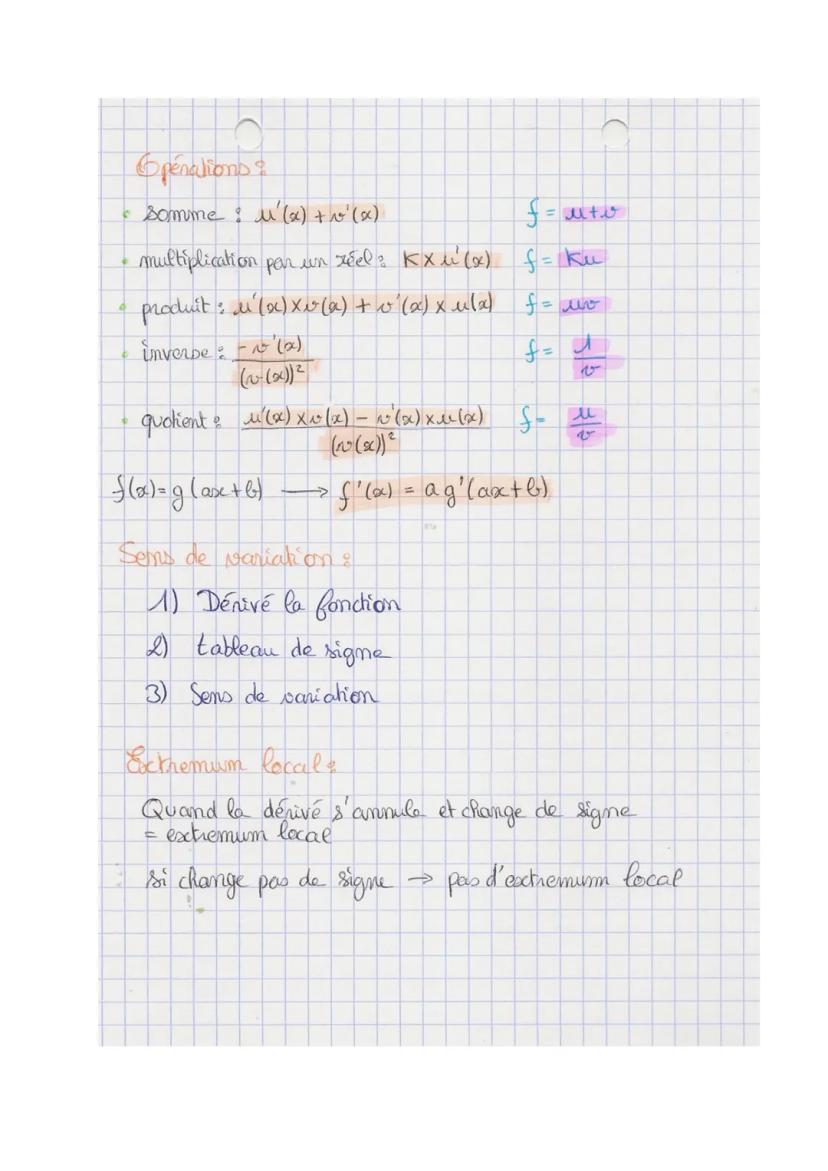 Opérations :
• somme : u'(x) + v'(x) f = u+v
• multiplication par un réel : K × u'(x) f = Ku
• produit : u'(x) × v(x) + v'(x) × u(x) f = uv
• inverse : -v'(x) / (v(x))² f = 1/v
• quotient : u'(x) × v(x) - v'(x) × u(x) / (v(x))² f = u/v
f(x) = g(ax+b) → f'(x) = a g'(ax+b)
Sens de variation :
1) Dérivé la fonction
2) tableau de signe
3) Sens de variation
Extremum local :
Quand la dérivé s'annule et change de signe
= extremum local
si change pas de signe → pas d'extremum local